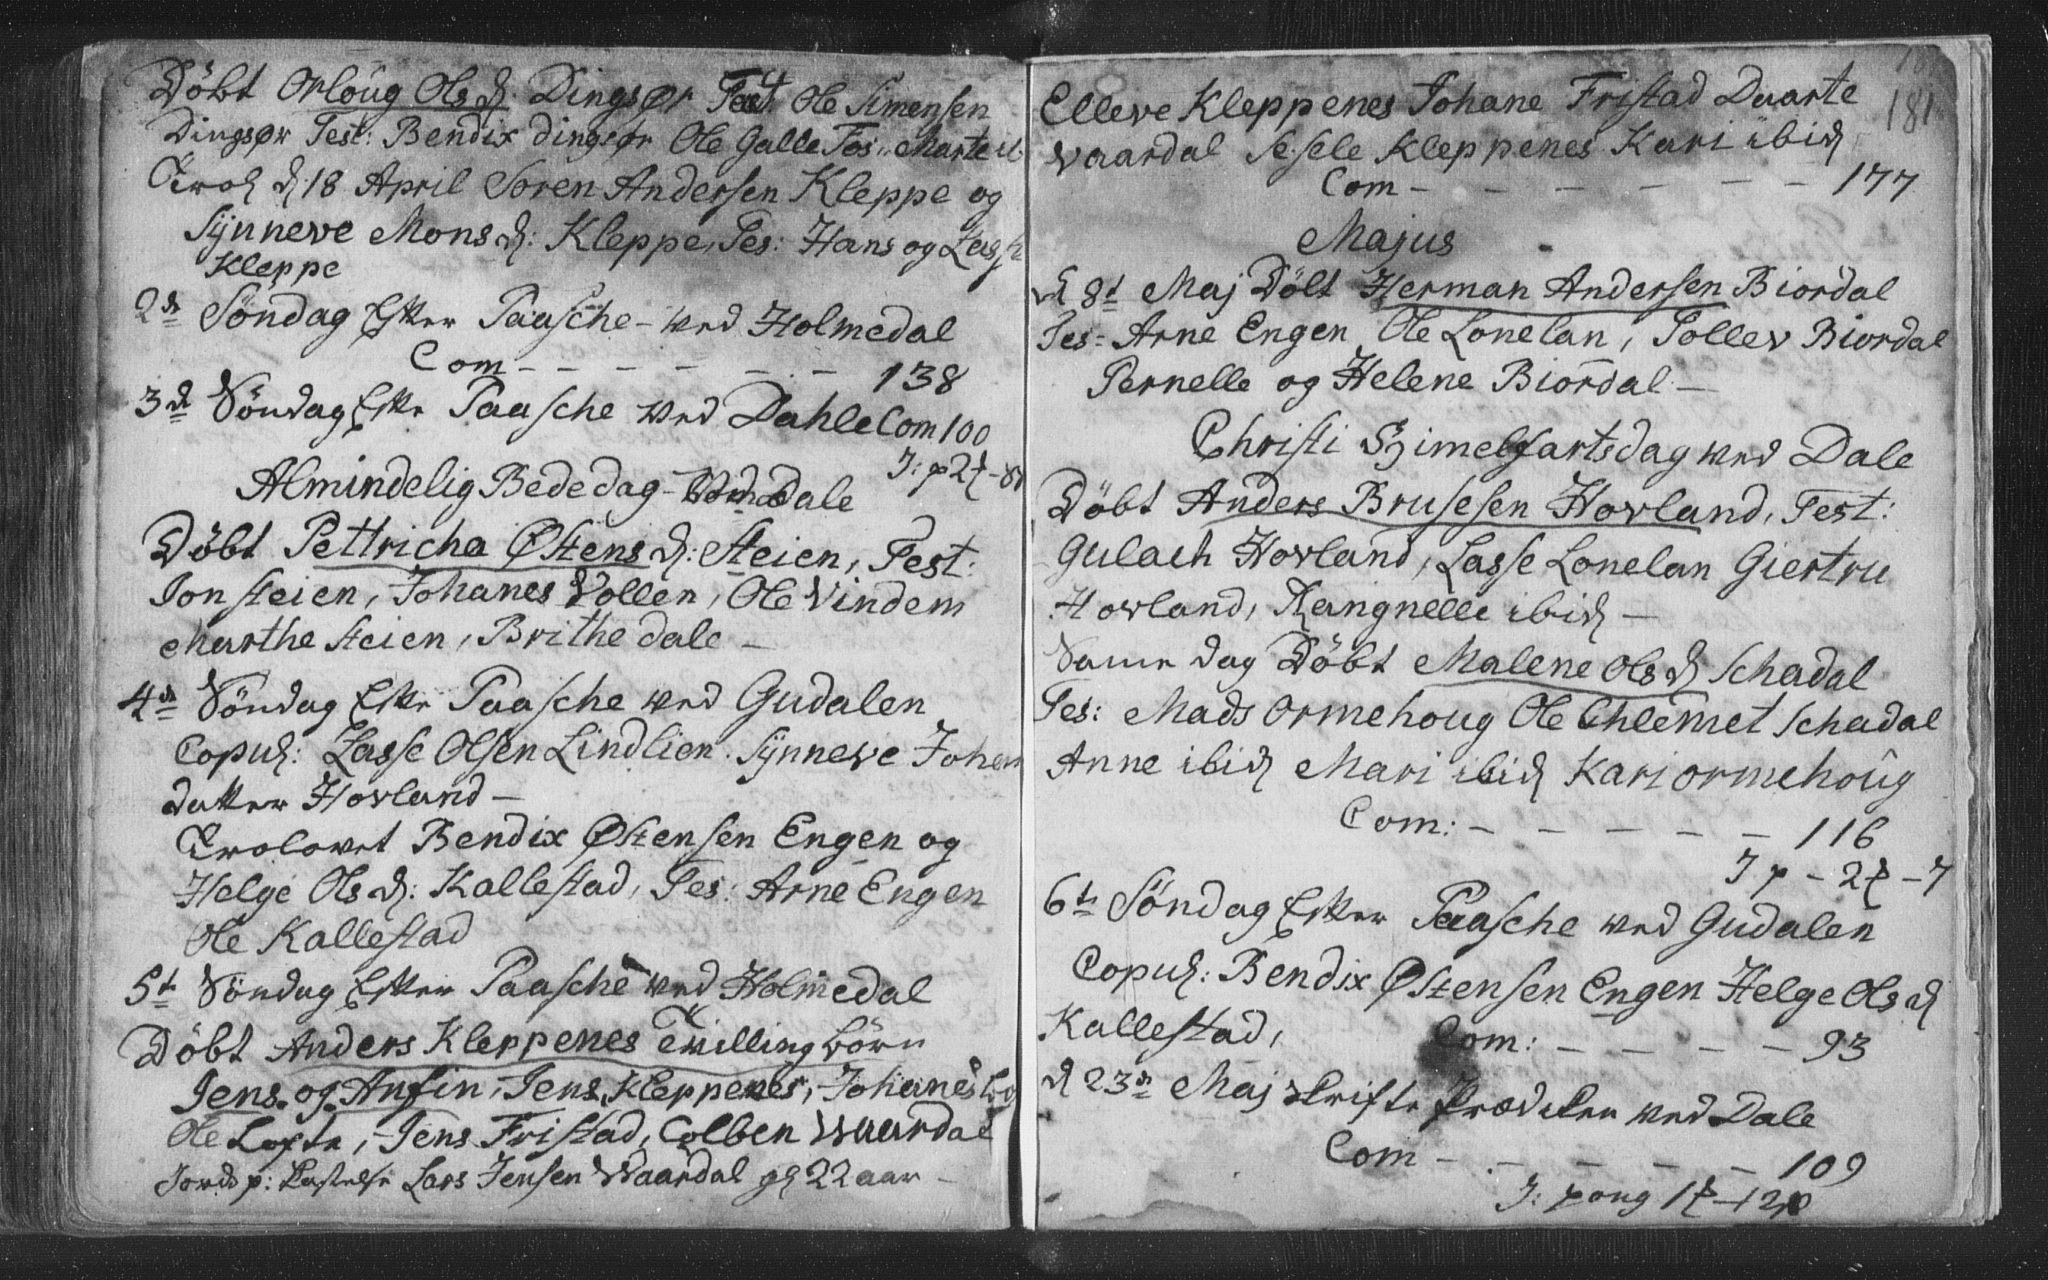 Döbt Orloug Ols d. Dingsør Ole Simensen
Dingsør Test: Bendix dingsør Ole Galle Fos Marte ib
Trol d 18 April Soren Andersen Kleppe og
Synneve Mons d: Kleppe, Tes: Hans og Lasse
Kleppe
2d Söndag Efter Paasche - ved Holmedal
Com - - - - - - - 138
3d Söndag Efter Paasche ved Dahle Com 100
Almindelig Bededag - Dale
Döbt Pettricha Østens d: Steien, Test:
Jon steien, Johanes Vollen, Ole Vindem
Marthe steien, Brithe dale -
4d Söndag Efter Paasche ved Gudalen
Copul: Lasse Olsen Lindlien. Synneve Johan
datter Hovland -
Trolovet Bendix Østensen Engen og
Helge Ols d: Kallestad, Tes: Arne Engen
Ole Kallestad
5t Söndag Efter Paasche ved Holmedal
Döbt Anders Kleppenes Tvilling börn
Jens og Anfin, Jens Kleppenes, Johanes
Ole Lofte, Jens Fristad, Colben Waardal
Jords p: Lars Jensen Waardal 22 aar -
181
Elleve Kleppenes Johane Fristad Daarte
Vaardal Sesele Kleppenes Kari ibid
Com - - - - - - - 177
Majus
d 8t Maj Döbt Herman Andersen Biordal
Tes: Arne Engen Ole Lonelan, Tollev Biordal
Pernelle og Helene Biordal -
Christi Himelfartsdag ved Dale
Döbt Anders Brusesen Hovland, Test:
Gulach Hovland, Lasse Lonelan Giertru
Hovland, Rangnelle ibid -
Same dag Döbt Malene Ols d Schadal
Tes: Mads Ormehoug Ole Chlemet Schadal
Anne ibid Mari ibid Kari Ormehoug
Com: - - - - - 116
6t Söndag Efter Paasche ved Gudalen
Copul: Bendix Østensen Engen Helge Ols d
Kallestad, Com: - - - - - 93
d 23d Maj Skrifte Prædiken ved Dale
Com - - - - - - 109